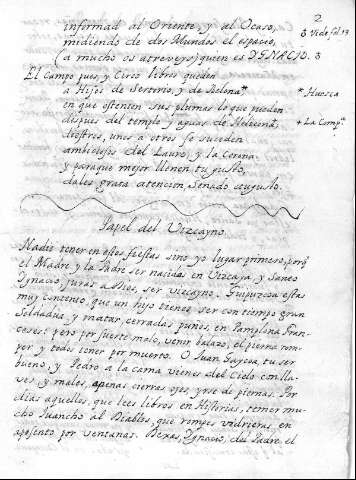 2
informad al Oriente, y al Ocaso,
midiendo de dos Mundos el espacio,
(a mucho os atreveys) quien es YGNACIO. 3
3 Vide fol. 13
El Campo pues, y Circo libres queden
a Hijos de Sertorio, y de Belona*,
* Huesca
en que ostenten sus plumas lo que pueden
despues del templo y aguas de
+ La Comp.ª
diestros, unos a otros se suceden
ambiciosos del Lauro, y la Corona.
y paraque mejor llenen tu gusto,
dales grata atencion, Senado augusto.
Papel del Vizcayno.
Nadie tener en estos fiestas sino yo lugar primero, porq
el Madre y la Padre ser nasidas en Vizcaya, y Saneo
Ignacio, juras a Dios, ser vizcayno. Guipuzcoa estas
muy contento, que un hijo tienes ser con tiempo gran
Soldadua, y matar cerradas punos, en Pamplona Fran-
ceses: pero por suerte malo, venir balazo, el pierna rom-
per y todos tener por muerto. O Juan Garcoa, tu ser
bueno, y Pedro a la cama vienes del Cielo con lla-
ves, y males, apenas cierras ojos, yrse de piernas. Por
dias aquellos, que lees libros en Historias, temer mu-
cho Juancho al Diablos, que rompes vidrieras en
aposento por ventanas. Dexas, Ignacio, del Padre el